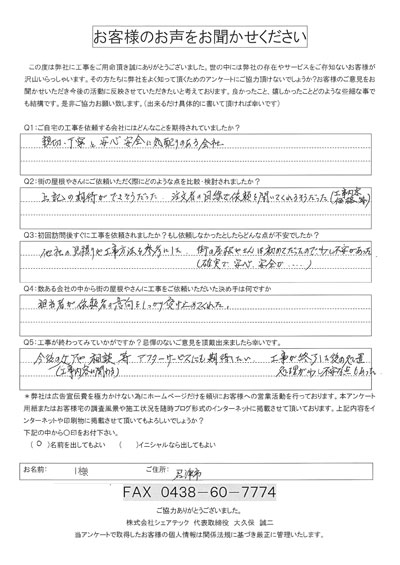 お客様のお声をお聞かせください
この度は弊社に工事をご用命頂き誠にありがとうございました。世の中には弊社の存在やサービスをご存知ないお客様が
沢山いらっしゃいます。その方たちに弊社をよく知って頂くためのアンケートにご協力頂けないでしょうか?お客様のご意見をお
聞かせいただき今後の活動に反映させていただきたいと考えております。良かったこと、嬉しかったことどのような些細な事で
も結構です。是非ご協力お願い致します。(出来るだけ具体的に書いて頂ければ幸いです)
Q1:ご自宅の工事を依頼する会社にはどんなことを期待されていましたか?
親切・丁寧、安心安全に気配りのある会社
Q2:街の屋根やさんにご依頼いただく際にどのような点を比較・検討されましたか?
上記の期待ができそうだった 注文者の目線で依頼を聞いてくれそうだった(工事内容
Q3:初回訪問後すぐに工事を依頼されましたか?もし依頼しなかったとしたらどんな点が不安でしたか?
他社の見積りや工事方法を参考にした 街の屋根やさんは初めてだったので少し不安があった
(確実で安心、安全で……)
Q4:数ある会社の中から街の屋根やさんにご依頼いただいた決め手は何ですか
担当者が依頼者の意向をしっかり受けとめてくれた。
Q5:工事が終わってみていかがですか?忌憚のないご意見を頂戴出来ましたら幸いです。
今後のケアや相談等アフターサービスにも期待したい 工事が終了した後の
(工事内容に関わる) 処理が少し不安な点もあった
*弊社は広告宣伝費を極力かけない為にホームページだけを頼りにお客様への営業活動を行っております。本アンケート
用紙またはお客様宅の調査風景や施工状況を随時ブログ形式のインターネットに掲載させて頂いております。上記内容をイ
ンターネットや印刷物に掲載させて頂いてもよろしいでしょうか?
下記の中から〇印をお付下さい。
(〇)名前を出してもよい ( )イニシャルなら出してもよい
お名前: I様 ご住所: 沼津市
FAX 0438-60-7774
ご協力ありがとうございました。
株式会社シェアテック 代表取締役 大久保 誠二
当アンケートで取得したお客様の個人情報は関係法規に基づき厳正に管理いたします。